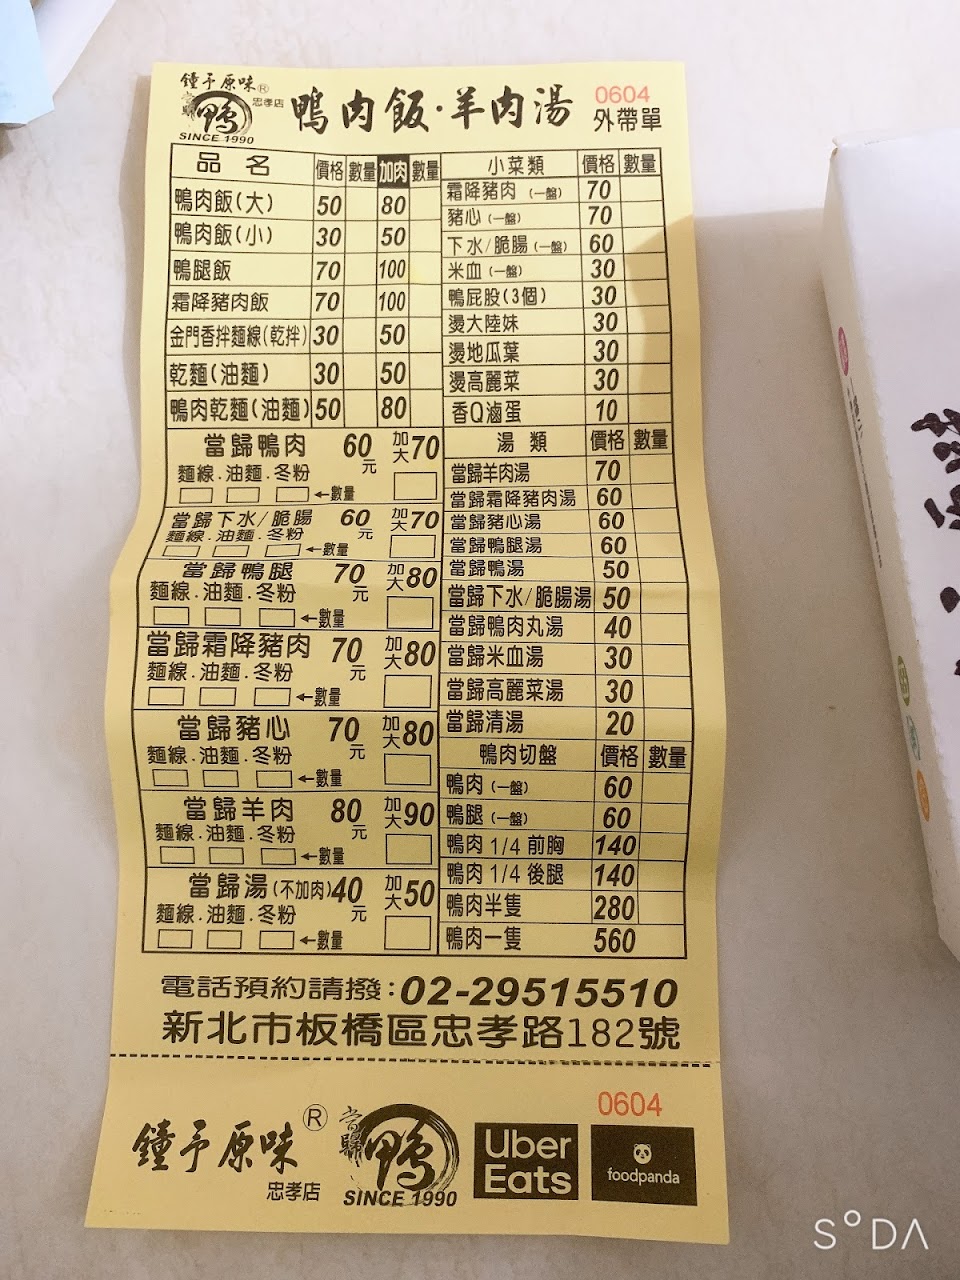 鐘予原味® 忠孝店
當歸鴨
SINCE 1990
鴨肉飯·羊肉湯
0604
外帶單
品名 價格 數量 加肉 數量
鴨肉飯(大) 50 80
鴨肉飯(小) 30 50
鴨腿飯 70 100
霜降豬肉飯 70 100
金門香拌麵線(乾拌) 30 50
乾麵(油麵) 30 50
鴨肉乾麵(油麵) 50 80
當歸鴨肉 60元 加大70
麵線.油麵.冬粉
←數量
當歸下水/脆腸 60元 加大70
麵線.油麵.冬粉
←數量
當歸鴨腿 70元 加大80
麵線.油麵.冬粉
←數量
當歸霜降豬肉 70元 加大80
麵線.油麵.冬粉
←數量
當歸豬心 70元 加大80
麵線.油麵.冬粉
←數量
當歸羊肉 80元 加大90
麵線.油麵.冬粉
←數量
當歸湯(不加肉) 40元 加大50
麵線.油麵.冬粉
←數量
小菜類 價格 數量
霜降豬肉(一盤) 70
豬心(一盤) 70
下水/脆腸(一盤) 60
米血(一盤) 30
鴨屁股(3個) 30
燙大陸妹 30
燙地瓜葉 30
燙高麗菜 30
香Q滷蛋 10
湯類 價格 數量
當歸羊肉湯 70
當歸霜降豬肉湯 60
當歸豬心湯 60
當歸鴨腿湯 60
當歸鴨湯 50
當歸下水/脆腸湯 50
當歸鴨肉丸湯 40
當歸米血湯 30
當歸高麗菜湯 30
當歸清湯 20
鴨肉切盤 價格 數量
鴨肉(一盤) 60
鴨腿(一盤) 60
鴨肉 1/4 前胸 140
鴨肉 1/4 後腿 140
鴨肉半隻 280
鴨肉一隻 560
電話預約請撥:02-29515510
新北市板橋區忠孝路182號
0604
鐘予原味®
忠孝店
當歸鴨
SINCE 1990
Uber
Eats
foodpanda
SODA